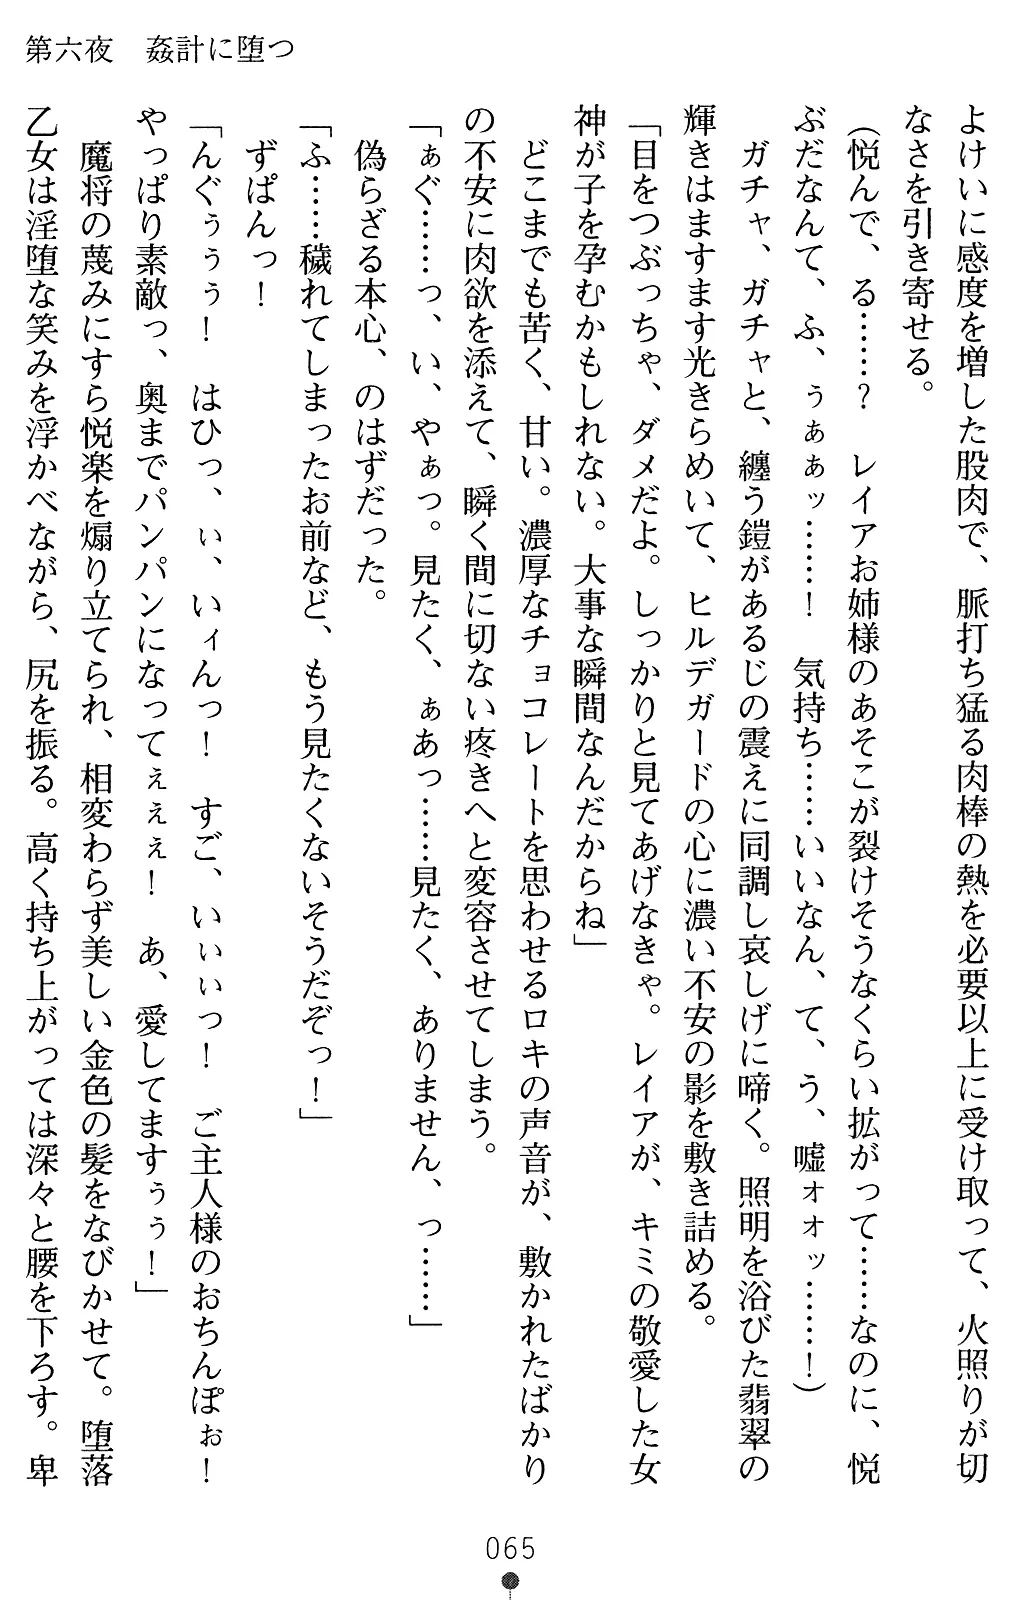 第六夜　姦計に堕つ
よけいに感度を増した股肉で、脈打ち猛る肉棒の熱を必要以上に受け取って、火照りが切
なさを引き寄せる。
（悦んで、る……？　レイアお姉様のあそこが裂けそうなくらい拡がって……なのに、悦
ぶだなんて、ふ、ぅぁぁッ……！　気持ち……いいなん、て、う、嘘ォォッ……！）
　ガチャ、ガチャと、纏う鎧があるじの震えに同調し哀しげに啼く。照明を浴びた翡翠の
輝きはますます光きらめいて、ヒルデガードの心に濃い不安の影を敷き詰める。
「目をつぶっちゃ、ダメだよ。しっかりと見てあげなきゃ。レイアが、キミの敬愛した女
神が子を孕むかもしれない。大事な瞬間なんだからね」
　どこまでも苦く、甘い。濃厚なチョコレートを思わせるロキの声音が、敷かれたばかり
の不安に肉欲を添えて、瞬く間に切ない疼きへと変容させてしまう。
「ぁぐ……っ、い、やぁっ。見たく、ぁあっ……見たく、ありません、っ……」
　偽らざる本心、のはずだった。
「ふ……穢れてしまったお前など、もう見たくないそうだぞっ！」
　ずぱんっ！
「んぐぅぅぅ！　はひっ、ぃ、いィんっ！　すご、いぃぃっ！　ご主人様のおちんぽぉ！
やっぱり素敵っ、奥までパンパンになってぇぇぇ！　あ、愛してますぅぅ！」
　魔将の蔑みにすら悦楽を煽り立てられ、相変わらず美しい金色の髪をなびかせて。堕落
乙女は淫堕な笑みを浮かべながら、尻を振る。高く持ち上がっては深々と腰を下ろす。卑
065